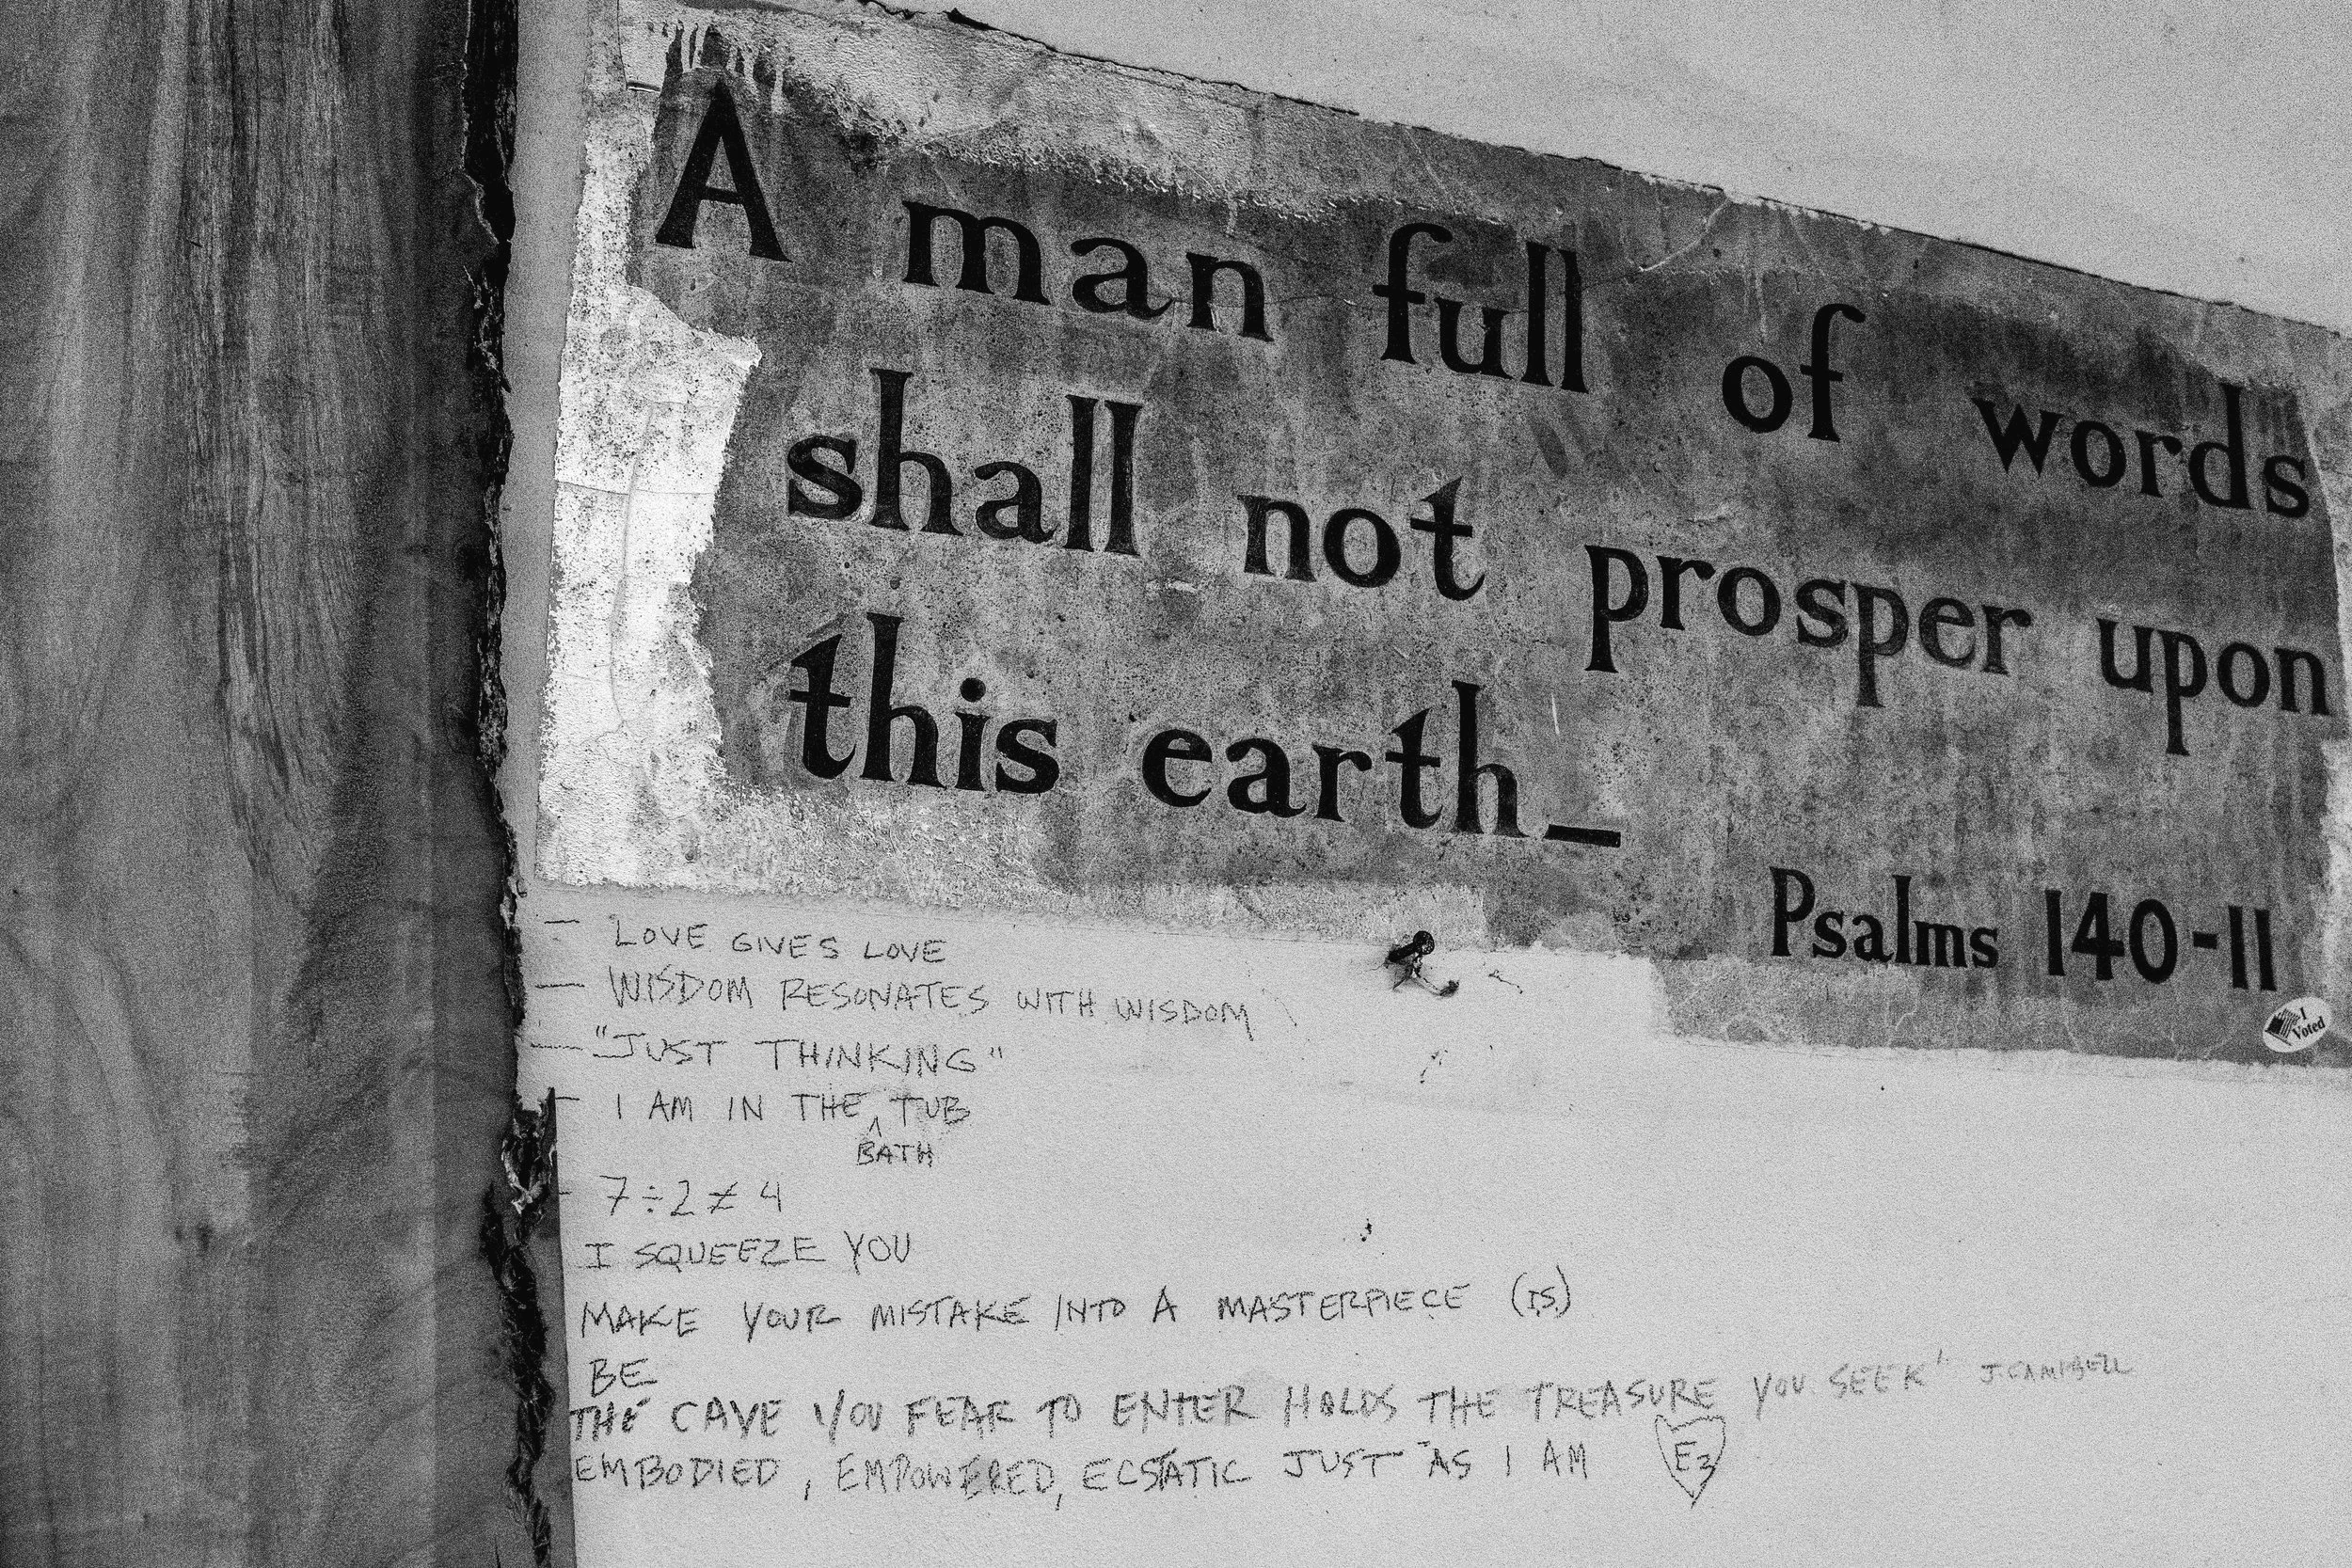 A man full of words
shall not prosper upon
this earth_
Psalms 140-11
I
Voted
— LOVE GIVES LOVE
— WISDOM RESONATES WITH WISDOM
— "JUST THINKING"
— I AM IN THE ^ TUB
BATH
- 7÷2≠4
I SQUEEZE YOU
MAKE YOUR MISTAKE INTO A MASTERPIECE (IS)
BE
THE CAVE YOU FEAR TO ENTER HOLDS THE TREASURE YOU SEEK" J. CAMPBELL
EMBODIED, EMPOWERED, ECSTATIC JUST AS I AM E3